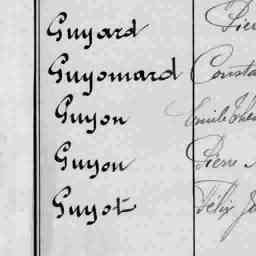 Guyard
Guyomard Consta
Guyon Emile
Guyon Pierre
Guyot Félix